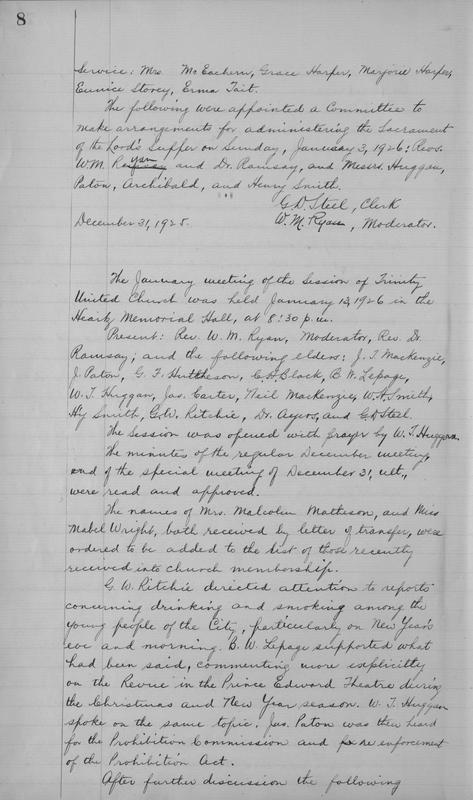 8
Service: Mrs. McEachern, Grace Harper, Marjorie Harper,
Eunice Storey, Erma Tait.
The following were appointed a Committee to
make arrangements for administering the Sacrament
of the Lord's Supper on Sunday, January 3, 1926: Revs.
W.M. Ryan and Dr. Ramsay, and Messrs. Huggan,
Paton, Archibald, and Henry Smith.
G.D. Steel, Clerk
December 31, 1925. W. M. Ryan, Moderator.
The January meeting of the Session of Trinity
United Church was held January 13, 1926 in the
Heartz Memorial Hall, at 8:30 p.m.
Present: Rev. W. M. Ryan, Moderator, Rev. Dr.
Ramsay; and the following elders: J. T. Mackenzie,
J. Paton, G. F. Hutcheson, C. H. Black, B. W. Lepage,
W. T. Huggan, Jas. Carter, Neil Mackenzie, W. A. Smith,
Hy Smith, G. W. Ritchie, Dr. Ayers, and G. D. Steel.
The Session was opened with prayer by W. T. Huggan.
The minutes of the regular December meeting,
and of the special meeting of December 31, ult.,
were read and approved.
The names of Mrs. Malcolm Matheson, and Miss
Mabel Wright, both received by letter of transfer, were
ordered to be added to the list of those recently
received into church membership.
G. W. Ritchie directed attention to reports
concerning drinking and smoking among the
young people of the City, particularly on New Year's
eve and morning. B. W. Lepage supported what
had been said, commenting more explicitly
on the Revue in the Prince Edward Theatre during
the Christmas and New Year season. W. T. Huggan
spoke on the same topic. Jas. Paton was then heard
for the Prohibition Commission and re enforcement
of the Prohibition Act.
After further discussion the following